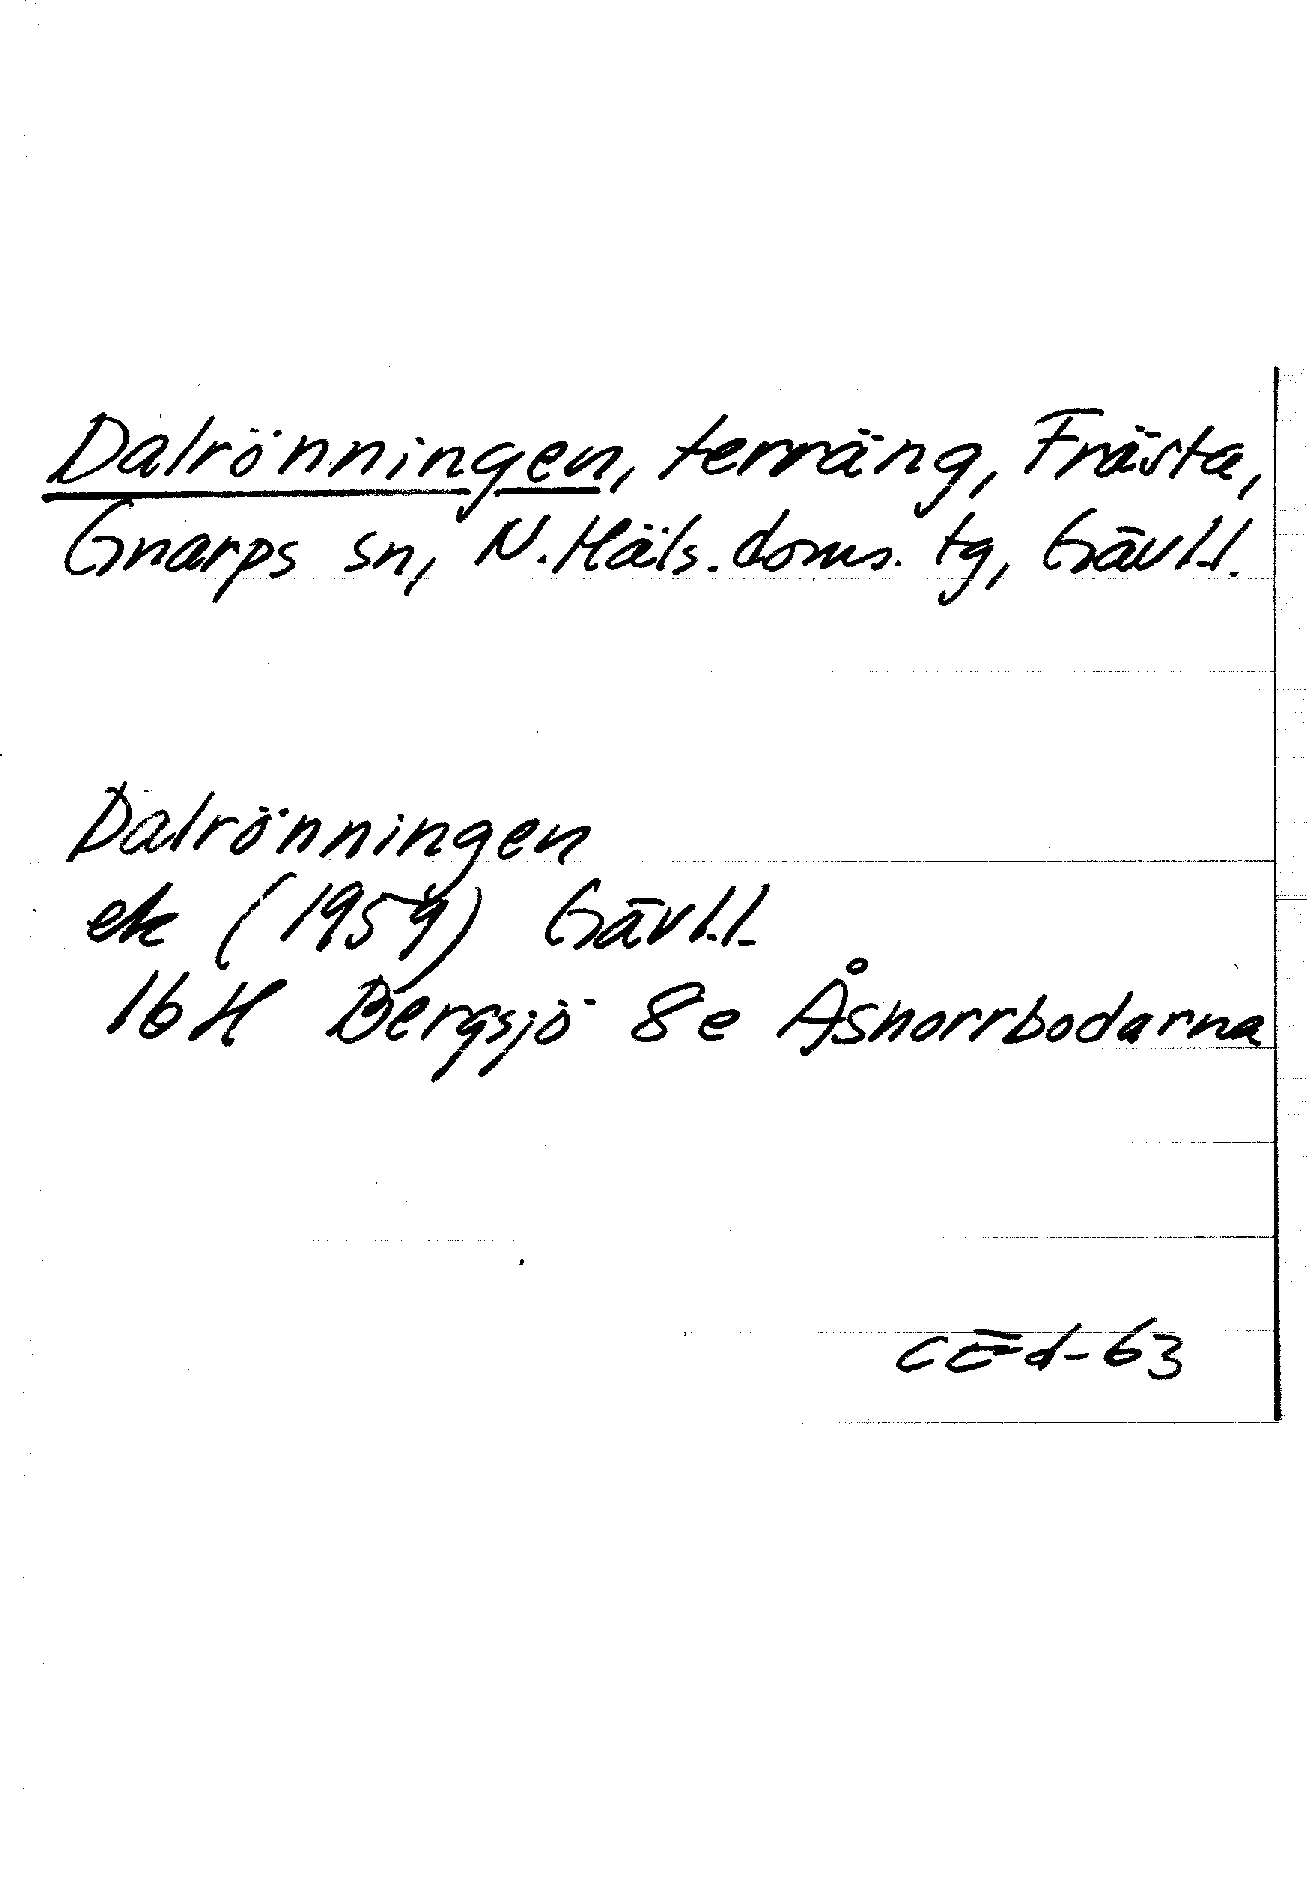 Dalrönningen, terräng, Frästa,
Gnarps sn, N. Häls. doms. tg, Gävl.l.
Dalrönningen
ek (1959) Gävl.l.
16 H Bergsjö 8e Åsnorrbodarna
CÖd-63